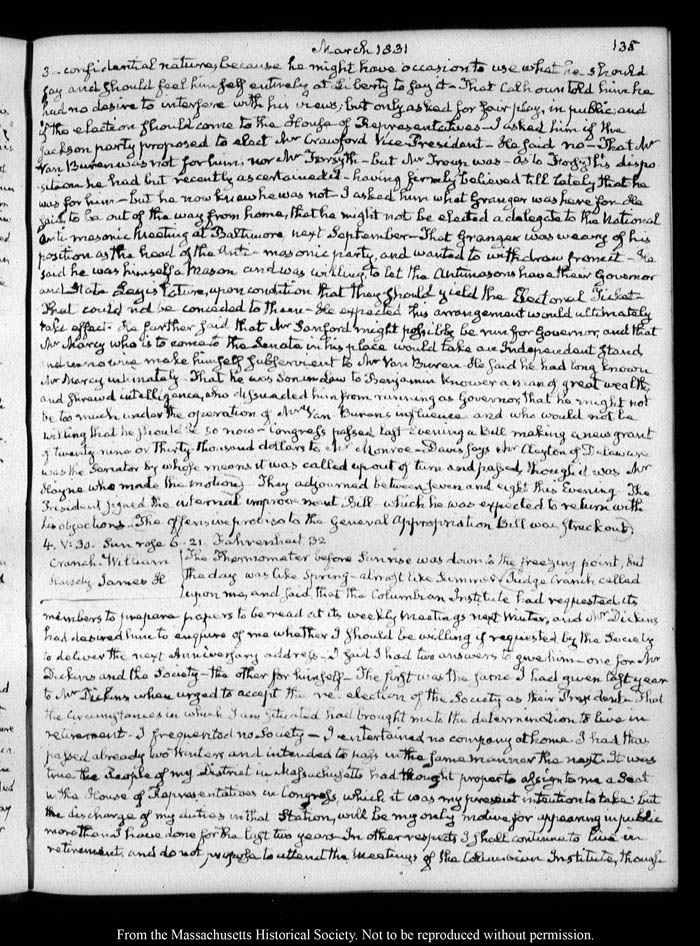 March 1831 135
3. confidential nature, because he might have occasion to use what he should
say and should feel himself entirely at liberty to say it — That Calhoun told him he
had no desire to interfere with his views, but only asked for fair play, in public, and
if the election should come to the House of Representatives — I asked him if the
Jackson party proposed to elect Mr Crawford Vice-President — He said no — That Mr
Van Buren was not for him, nor Mr Forsyth — but Mr Troup was — as to Forsyth's dispo-
sition he had but recently ascertained it — having firmly believed till lately that he
was for him — but he now knew he was not — I asked him what Granger was here for — He
said to be out of the way from home, that he might not be elected a delegate to the National
Anti-masonic Meeting at Baltimore next September — That Granger was weary of his
position as the head of the Anti-masonic party, and wanted to withdraw from it — He
said he was himself a Mason and was willing to let the Antimasons have their Governor
and State Legislature, upon condition that they should yield the Electoral Ticket —
That could not be conceded to them — He expected this arrangement would ultimately
take effect. He further said that Mr Sanford might possibly be run for Governor, and that
Mr Marcy who is to come to the Senate in his place would take an Independent stand
and in no wise make himself subservient to Mr Van Buren. He said he had long known
Mr Marcy intimately — That he was Son in law to Benjamin Knower a man of great wealth
and shrewd intelligence, who dissuaded him from running as Governor, that he might not
be too much under the operation of Mr Van Buren's influence and who would not be
willing that he should be so now — Congress passed last Evening a Bill making a new grant
of twenty nine or thirty thousand dollars to Mr Monroe — Davis says Mr Clayton of Delaware
was the Senator by whose means it was called up out of turn and passed, though it was Mr
Hayne who made the motion. They adjourned between seven and eight this Evening. The
President signed the internal improvement Bill which he was expected to return with
his objections. The offensive proviso to the General Appropriation Bill was struck out.
4. V:30. Sun rose 6. 21. Fahrenheit 32
Cranch William The Thermometer before Sunrise was down to the freezing point, but
James H the day was like Spring — almost like Summer. Judge Cranch called
upon me, and said, that the Columbian Institute had requested its
members to prepare papers to be read at its weekly Meetings next Winter, and Mr Dickins
had desired him to enquire of me whether I should be willing if requested by the Society
to deliver the next Anniversary address — I said I had two answers to give him — one for Mr
Dickins and the Society — the other for himself — The first was the same I had given last year
to Mr Dickins when urged to accept the re-election of the Society as their President — That
the circumstances in which I am situated had brought me to the determination to live in
retirement — I frequented no Society — I entertained no company at home. I had thus
passed already two Winters and intended to pass in the same manner the next. It was
true the People of my District in Massachusetts had thought proper to assign to me a Seat
in the House of Representatives in Congress, which it was my present intention to take: but
the discharge of my duties in that Station, will be my only motive for appearing in public
more than I have done for the last two years. In other respects I shall continue to live in
retirement, and do not propose to attend the meetings of the Columbian Institute, though
From the Massachusetts Historical Society. Not to be reproduced without permission.